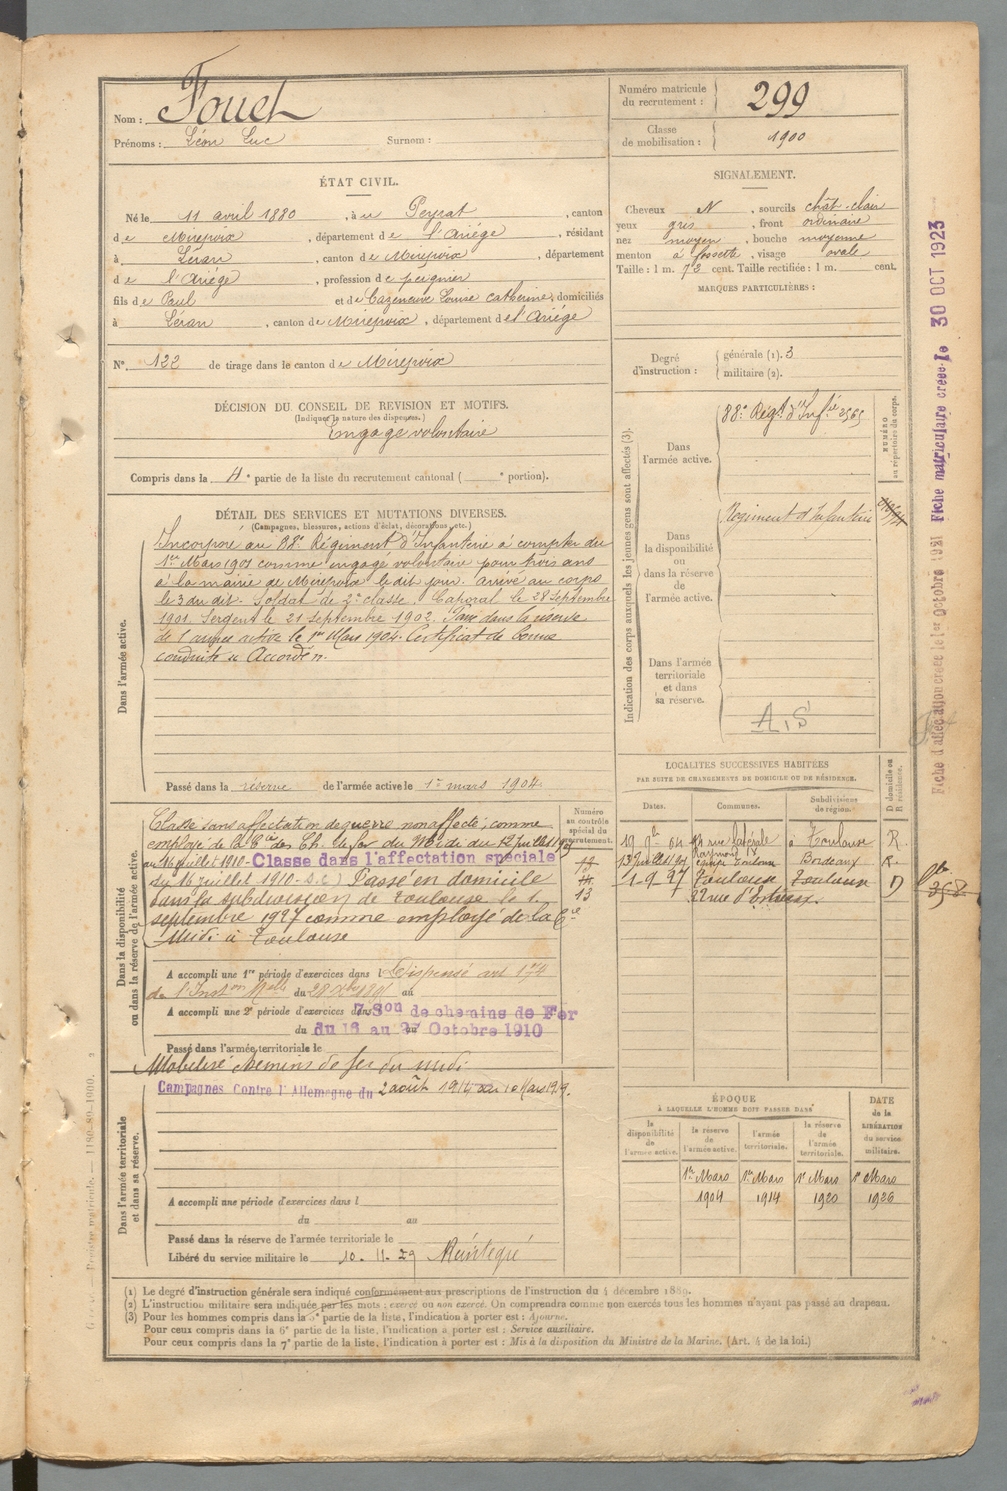 Nom : Fouet
Prénoms : Léon Luc Surnom :
Numéro matricule du recrutement : 299
Classe de mobilisation : 1900
ÉTAT CIVIL.
Né le 11 avril 1880, à Peyrat, canton
de Mirepoix, département de l'Ariége, résidant
à Léran, canton de Mirepoix, département
de l'Ariége, profession de peignier
fils de Paul et de Cazeneuve Louise Catherine, domiciliés
à Léran, canton de Mirepoix, département de l'Ariége
N° 122 de tirage dans le canton de Mirepoix
DÉCISION DU CONSEIL DE REVISION ET MOTIFS.
(Indiquer la nature des dispenses.)
Engagé volontaire
Compris dans la 4e partie de la liste du recrutement cantonal ( e portion).
SIGNALEMENT.
Cheveux N, sourcils chât. clair
yeux gris, front ordinaire
nez moyen, bouche moyenne
menton à fossette, visage ovale
Taille : 1 m. 72 cent. Taille rectifiée : 1 m. cent.
MARQUES PARTICULIÈRES :
Degré d'instruction : générale (1). 3
militaire (2).
DÉTAIL DES SERVICES ET MUTATIONS DIVERSES.
(Campagnes, blessures, actions d'éclat, décorations, etc.)
Dans l'armée active.
Incorporé au 88e Régiment d'Infanterie à compter du
1er Mars 1901 comme engagé volontaire pour trois ans
à la mairie de Mirepoix le dit jour. arrivé au corps
le 3 du dit. Soldat de 2e classe. Caporal le 28 septembre
1901. Sergent le 21 septembre 1902. Passé dans la réserve
de l'armée active le 1er Mars 1904. Certificat de bonne
conduite " Accordé ".
Passé dans la réserve de l'armée active le 1er mars 1904.
Indication des corps auxquels les jeunes gens sont affectés (3).
NUMÉRO au répertoire du corps.
Dans l'armée active.
88e Régt d'Infie 2565
Dans la disponibilité ou dans la réserve de l'armée active.
Régiment d'Infanterie
Dans l'armée territoriale et dans sa réserve.
A.S
Dans la disponibilité ou dans la réserve de l'armée active.
Numéro au contrôle spécial du recrutement.
Classé sans affectation de guerre non affecté, comme
employé de la Cie des Ch. de fer du Midi du 12 Juillet
au 16 juillet 1910 - Classé dans l'affectation spéciale
du 16 juillet 1910 - S.C.) Passé en domicile
dans la subdivision de Toulouse le 1er
septembre 1927 comme employé de la Cie
Midi à Toulouse
13
A accompli une 1re période d'exercices dans Dispensé art 174
de l'Instion Melle du 28 Xbre 1895 au
A accompli une 2e période d'exercices dans 7e Son de chemins de Fer
du 16 au 27 Octobre 1910
Passé dans l'armée territoriale le
Mobilisé chemins de fer du midi
Dans l'armée territoriale et dans sa réserve.
Campagnes Contre l'Allemagne du 2 août 1914 au 10 Mars 1919.
A accompli une période d'exercices dans l
du au
Passé dans la réserve de l'armée territoriale le
Libéré du service militaire le 10-11-29 Réintégré
LOCALITÉS SUCCESSIVES HABITÉES
PAR SUITE DE CHANGEMENTS DE DOMICILE OU DE RÉSIDENCE.
Dates. Communes. Subdivisions de région. D domicile ou R résidence.
19 9bre 04 rue latérale à Toulouse R.
13 Juillet Toulouse Bordeaux R.
1-9-27 Toulouse Toulouse D
22 rue d'
358
ÉPOQUE
À LAQUELLE L'HOMME DOIT PASSER DANS
la disponibilité de l'armée active. la réserve de l'armée active. l'armée territoriale. la réserve de l'armée territoriale. DATE de la LIBÉRATION du service militaire.
1er Mars 1904 1er Mars 1914 1er Mars 1920 1er Mars 1926
(1) Le degré d'instruction générale sera indiqué conformément aux prescriptions de l'instruction du 4 décembre 1889.
(2) L'instruction militaire sera indiquée par les mots : exercé ou non exercé. On comprendra comme non exercés tous les hommes n'ayant pas passé au drapeau.
(3) Pour les hommes compris dans la 5e partie de la liste, l'indication à porter est : Ajourné.
Pour ceux compris dans la 6e partie de la liste, l'indication à porter est : Service auxiliaire.
Pour ceux compris dans la 7e partie de la liste, l'indication à porter est : Mis à la disposition du Ministre de la Marine. (Art. 4 de la loi.)
Fiche d'affectation créée le 1er Octobre 1921 Fiche matriculaire créée le 30 OCT 1923
Registre matricule. — 1180-89-1000.